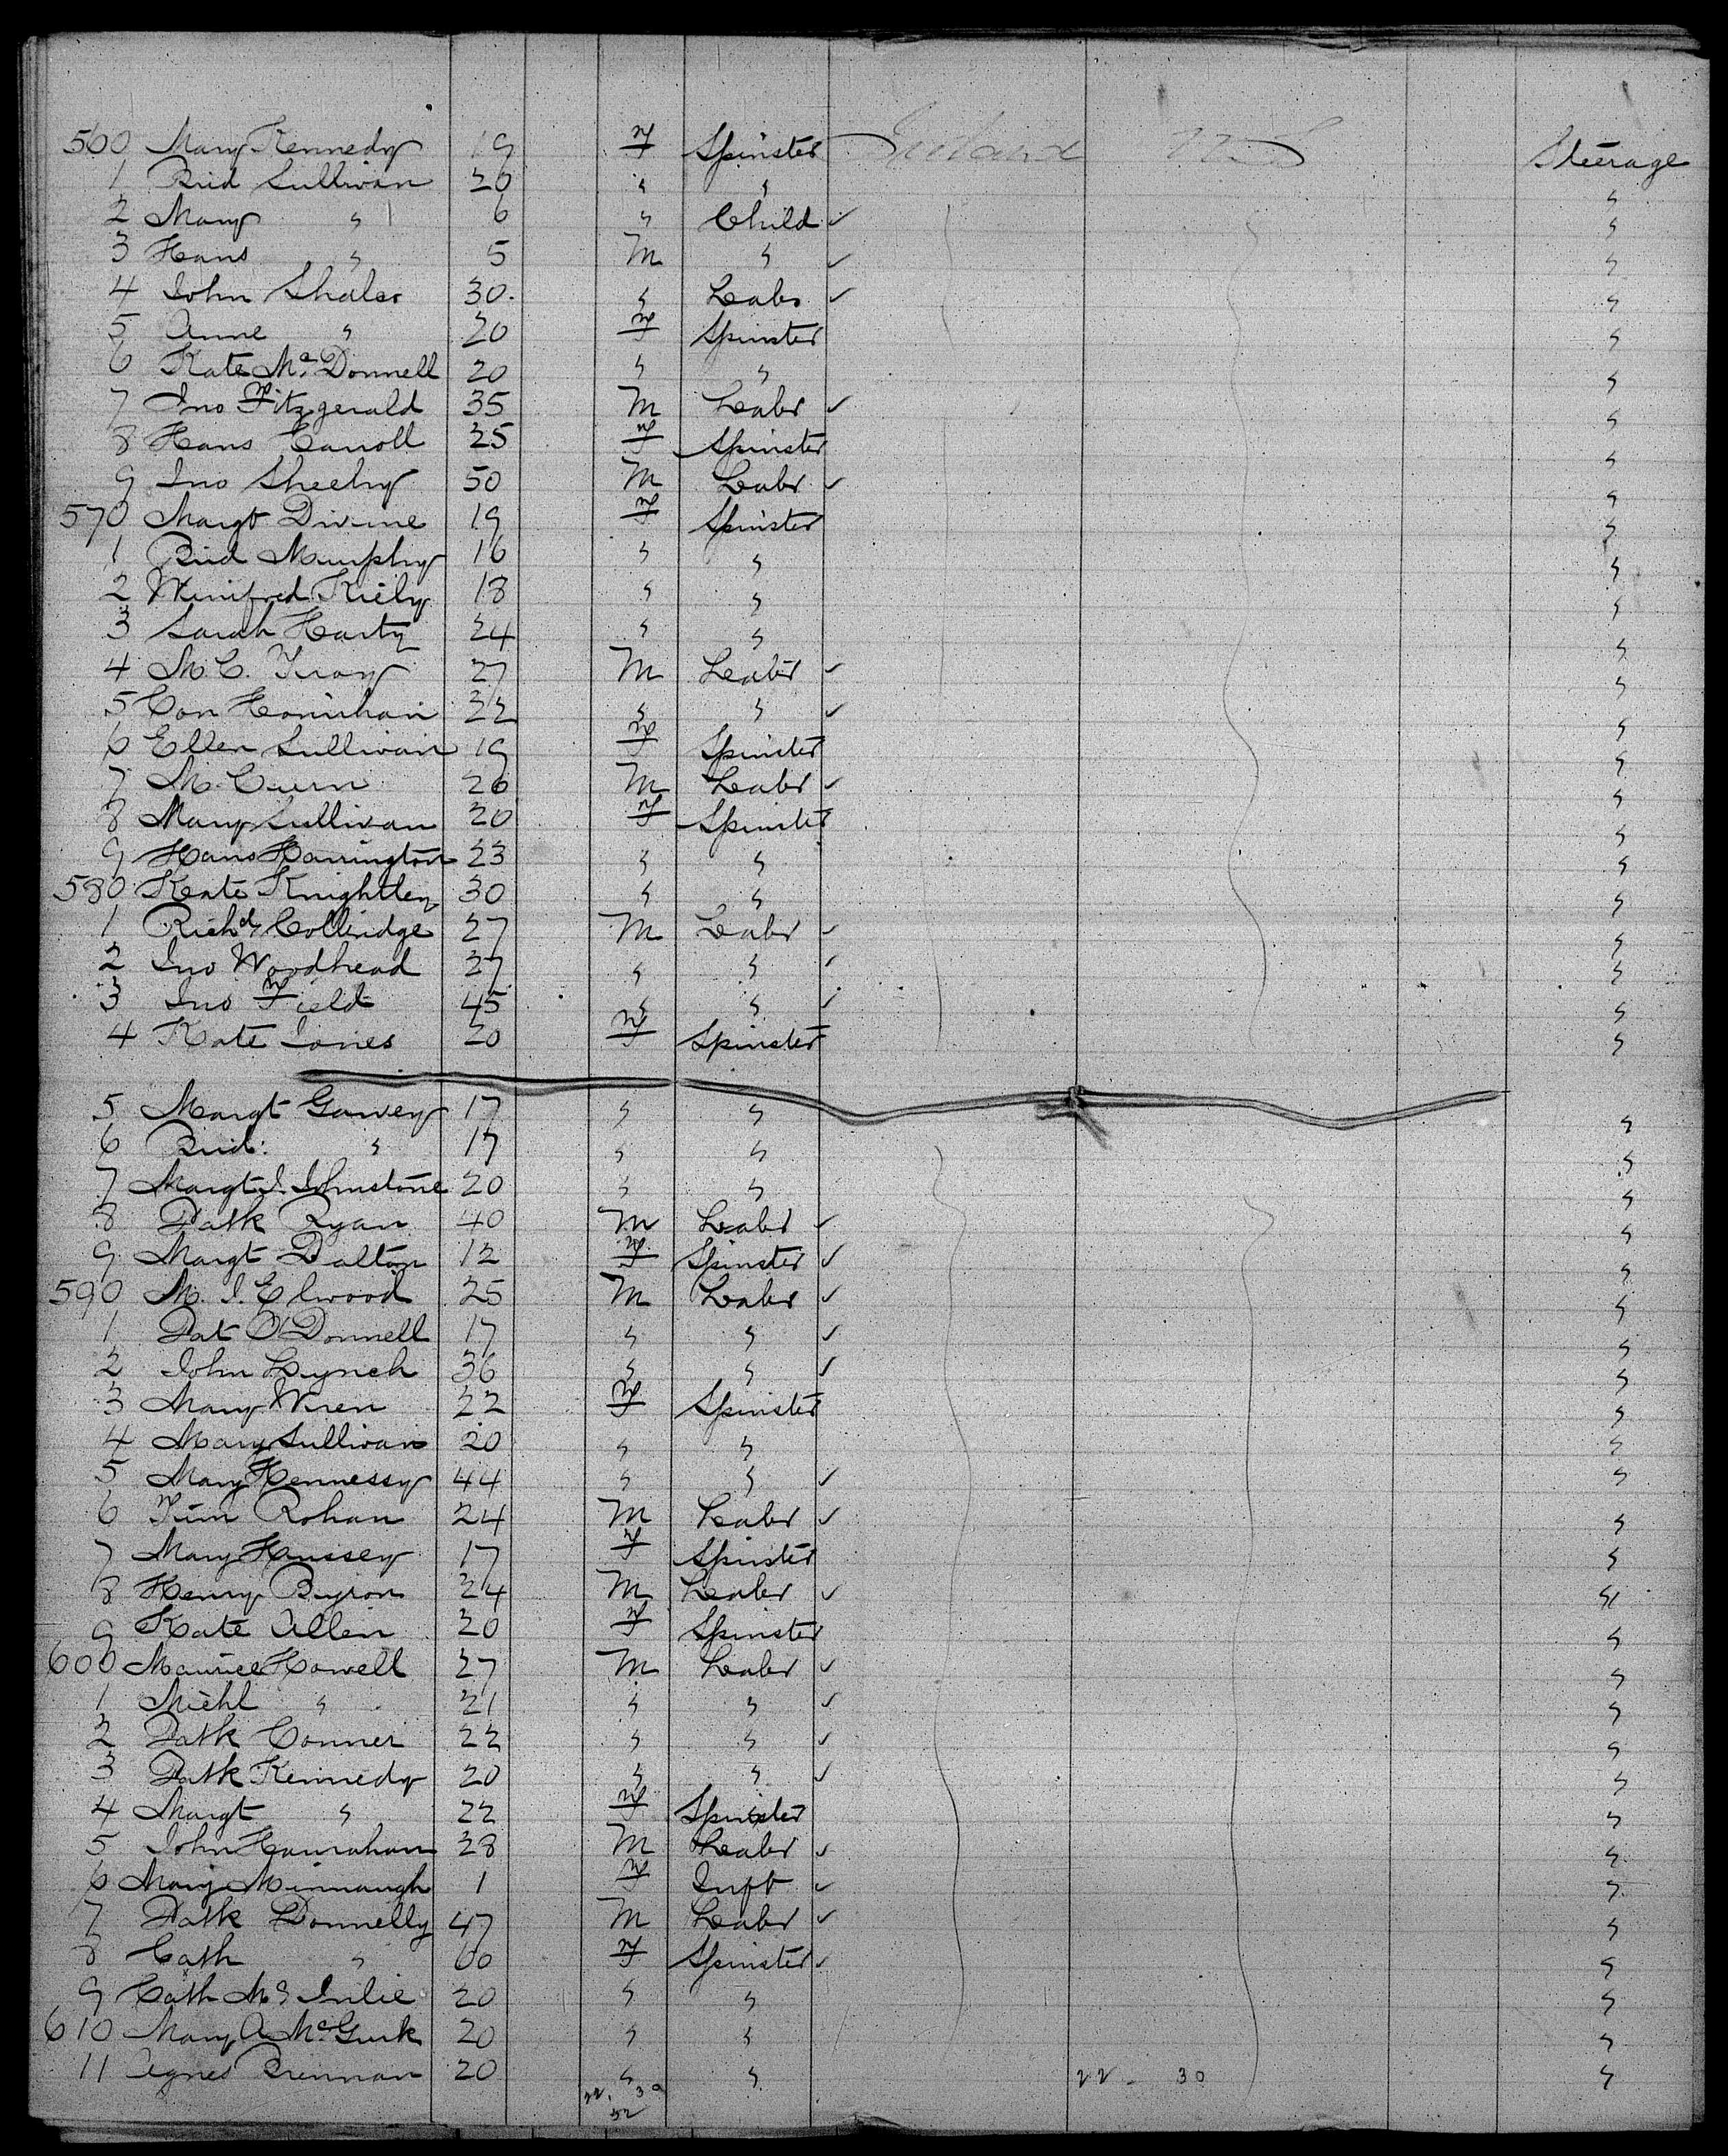 560 Mary Kennedy 19 F Spinster Ireland U S Steerage
1 Brid Sullivan 20 " " "
2 Mary " 6 " Child ✓ "
3 Hans " 5 M " ✓ "
4 John Shaler 30. " Labr ✓ "
5 Anne " 20 F Spinster "
6 Kate McDonnell 20 " " "
7 Jno Fitzgerald 35 M Labr ✓ "
8 Hans Carroll 25 F Spinster "
9 Jno Sheehy 50 M Labr ✓ "
570 Margt Divine 19 F Spinster "
1 Brid Murphy 16 " " "
2 Winifred Kiely 18 " " "
3 Sarah Harty 24 " " "
4 M. C. 27 M Labr ✓ "
5 Con Hounihan 22 " " ✓ "
6 Ellen Sullivan 19 F Spinster "
7 M. 26 M Labr ✓ "
8 Mary Sullivan 20 F Spinster "
9 Hans Harrington 23 " " "
580 Kate Knightley 30 " " "
1 Richd Colleridge 27 M Labr ✓ "
2 Jno Woodhead 27 " " ✓ "
3 Jno Field 45 " " ✓ "
4 Kate Jones 20 F Spinster "
5 Margt Garvey 17 " " "
6 Brid: " 17 " " "
7 Margt J. Johnstone 20 " " "
8 Patk Ryan 40 M Labr ✓ "
9 Margt Dalton 12 F Spinster ✓ "
590 M. J. Elwood 25 M Labr ✓ "
1 Pat O'Donnell 17 " " ✓ "
2 John Lynch 36 " " ✓ "
3 Mary Wren 22 F Spinster "
4 Mary Sullivan 20 " " "
5 Mary Hennessy 44 " " ✓ "
6 Tim Rohan 24 M Labr ✓ "
7 Mary Hussey 17 F Spinster "
8 Henry Byron 24 M Labr ✓ "
9 Kate Allen 20 F Spinster "
600 Maurice Howell 27 M Labr ✓ "
1 Michl " 21 " " ✓ "
2 Patk Conner 22 " " ✓ "
3 Patk Kennedy 20 " " ✓ "
4 Margt " 22 F Spinster "
5 John Hanrahan 28 M Labr ✓ "
6 Mary Minnaugh 1 F Inft ✓ "
7 Patk Donnelly 47 M Labr ✓ "
8 Cath " 60 F Spinster ✓ "
9 Cath Mc 20 " " "
610 Mary A McGurk 20 " " "
11 Agnes Brennan 20 " " 22 - 30 "
22. 30
52